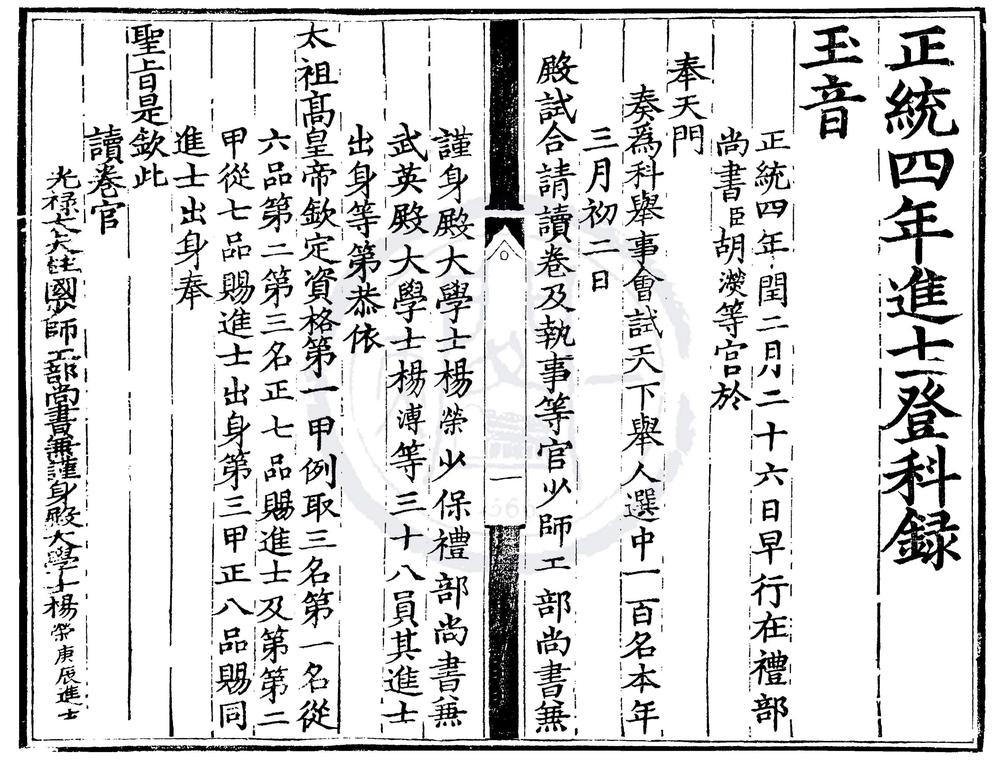 正統四年進士登科錄
玉音
正統四年閏二月二十六日早行在禮部
尚書臣胡濙等官於
奉天門
奏爲科舉事會試天下舉人選中一百名本年
三月初二日
殿試合請讀卷及執事等官少師工部尚書兼
一
謹身殿大學士楊榮少保禮部尚書兼
武英殿大學士楊溥等三十八員其進士
出身等第恭依
太祖髙皇帝欽定資格第一甲例取三名第一名從
六品第二第三名正七品賜進士及第第二
甲從七品賜進士出身第三甲正八品賜同
進士出身奉
聖旨是欽此
讀卷官
光祿大夫柱國少師工部尚書兼謹身殿大學士楊榮庚辰進士